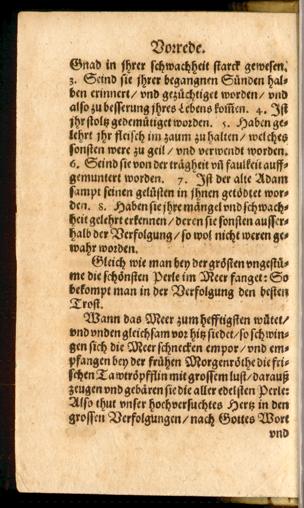 Vorrede.
Gnad in jhrer schwachheit starck gewesen.
3. Seind sie jhrer begangnen Sünden hal-
ben erinnert / vnd gezüchtiget worden / vnd
also zu besserung jhres Lebens kom̃en. 4. Ist
jhr stoltz gedemütiget worden. 5. Haben ge-
lehrt jhr fleisch im zaum zu halten / welches
sonsten were zu geil / vnd verwendt worden.
6. Seind sie von der trägheit vñ faulkeit auff-
gemuntert worden. 7. Ist der alte Adam
sampt seinen gelüsten in jhnen getödtet wor-
den. 8. Haben sie jhre mängel vnd schwach-
heit gelehrt erkennen / deren sie sonsten ausser-
halb der Verfolgung / so wol nicht weren ge-
wahr worden.
Gleich wie man bey der grösten vngestü-
me die schönsten Perle im Meer fanget: So
bekompt man in der Verfolgung den besten
Trost.
Wann das Meer zum hefftigsten wütet /
vnd vnden gleichsam vor hitz siedet / so schwin-
gen sich die Meerschnecken empor / vnd em-
pfangen bey der frühen Morgenröthe die fri-
schen Tawtröpfflin mit grossem lust / darauß
zeugen vnd gebären sie die aller edelsten Perle:
Also thut vnser hochversuchtes Hertz in den
grossen Verfolgungen / nach Gottes Wort
vnd